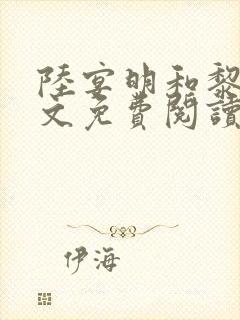 陸宴明和黎
文免費閱讀
伊海